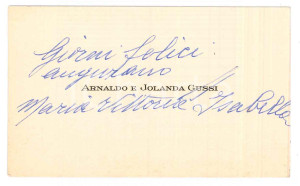 Giorni felici
augurano
ARNALDO E JOLANDA GUSSI
Maria Vittoria Isabella